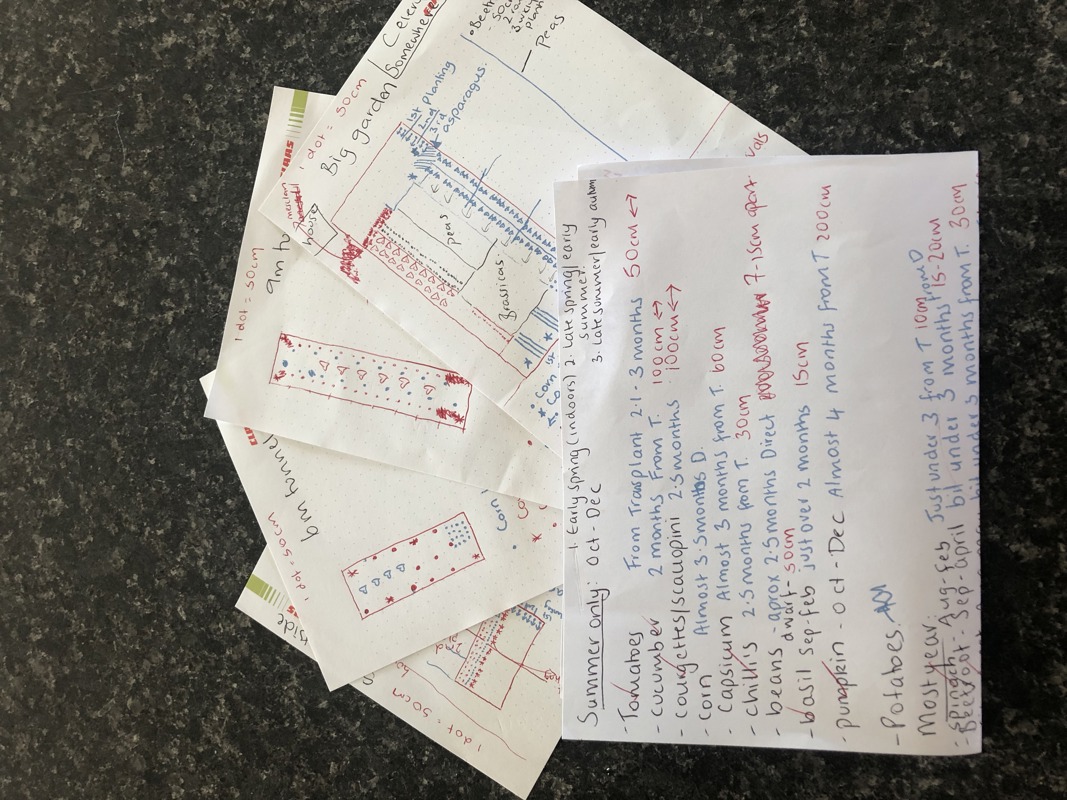 1. Early spring (indoors) 2. Late spring/early summer.
3. Late summer/early autum
Summer only: Oct - Dec
- Tomatoes From Transplant 2.1 - 3 months 50cm
- cucumber 2 months From T. 100cm
- courgettes/scallopini 2.5 months 100cm
- corn Almost 3.5 months D.
- Capsium Almost 3 months from T. 60cm
- chillis 2.5 months from T. 30cm
- beans - aprox 2.5 months Direct 7-15cm apart
dwarf - 50cm
- basil Sep-Feb just over 2 months 15cm
- pumpkin - Oct - Dec Almost 4 months from T 200cm
- Potatoes.
Most year.
- spinach Aug-Feb Just under 3 from T 10cm
- Beetroot - Sep-April bit under 3 months from D 15-20cm
bit under 3 months from T. 30cm
Big garden
Somewhere
1 dot = 50cm
house
mesclan
1st
2nd Planting
3rd
asparagus.
peas
Brassicas
corn 1st
Peas
vals
1 dot = 50cm
9m
1 dot = 50cm
6m tunnel
corn
1 dot = 50cm
side
2nd